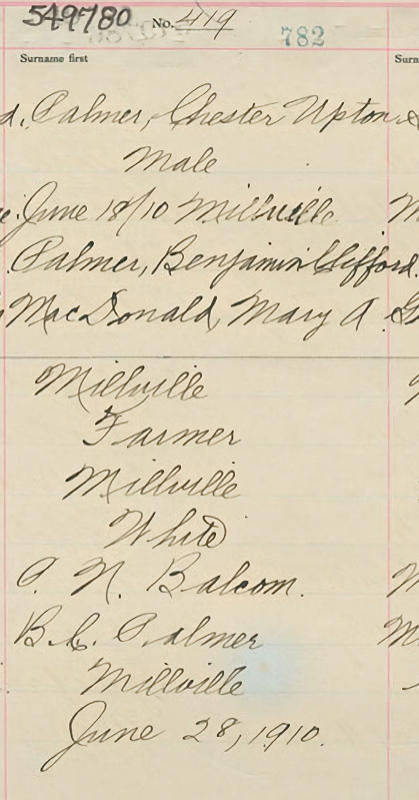 549780 No. 419 782
Surname first Surn
d. Palmer, Chester Upton
Male
June 18/10 Millville
Palmer, Benjamin Clifford.
MacDonald, Mary A
Millville
Farmer
Millville
White
P. N. Balcom.
B.C. Palmer
Millville
June 28, 1910.